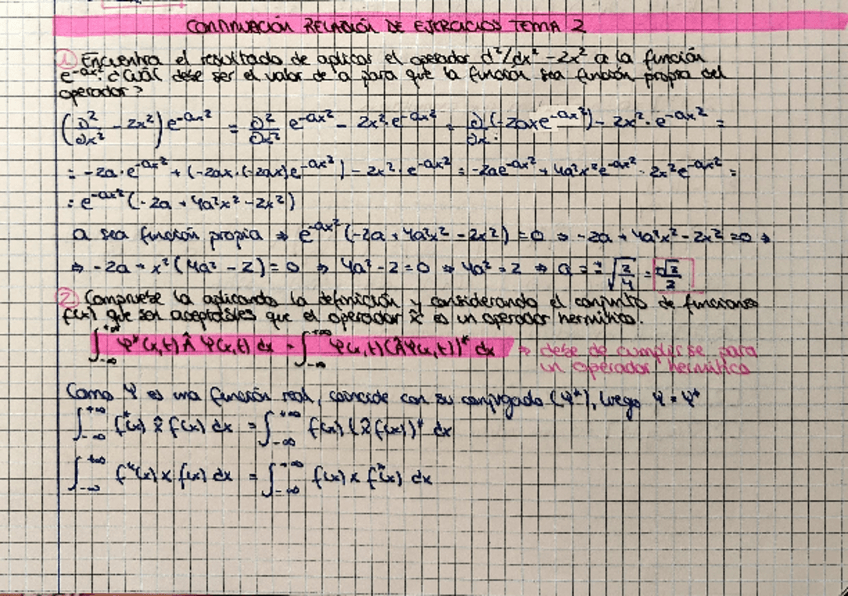 CONTINUACIÓN RELACIÓN DE EJERCICIOS TEMA 2
① Encuentra el resultado de aplicar el operador d²/dx² - 2x² a la función
e^-ax². ¿Cuál debe ser el valor de a para que la función sea función propia del
operador?
(∂²/∂x² - 2x²) e^-ax² = ∂²/∂x² e^-ax² - 2x²·e^-ax² = ∂/∂x (-2axe^-ax²) - 2x²·e^-ax² =
= -2a·e^-ax² + (-2ax·(-2ax)e^-ax²) - 2x²·e^-ax² = -2ae^-ax² + 4a²x²e^-ax² - 2x²e^-ax² =
= e^-ax² (-2a + 4a²x² - 2x²)
a sea función propia ⇒ e^-ax² (-2a + 4a²x² - 2x²) = 0 ⇒ -2a + 4a²x² - 2x² = 0 ⇒
⇒ -2a + x²(4a² - 2) = 0 ⇒ 4a² - 2 = 0 ⇒ 4a² = 2 ⇒ a = ±√(2/4) = ±√2/2
② Compruebe la aplicando la definición y considerando el conjunto de funciones
f(x) que son aceptables que el operador x̂ es un operador hermítico.
∫_-∞^+∞ Ψ*(x,t) Â Ψ(x,t) dx = ∫_-∞^+∞ Ψ(x,t)(ÂΨ(x,t))* dx ⇒ debe de cumplirse para
un operador hermítico
Como Ψ es una función real, coincide con su conjugado (Ψ*), luego Ψ = Ψ*
∫_-∞^+∞ f*(x) x̂ f(x) dx = ∫_-∞^+∞ f(x) (x̂ f(x))* dx
∫_-∞^+∞ f*(x) x f(x) dx = ∫_-∞^+∞ f(x) x f*(x) dx